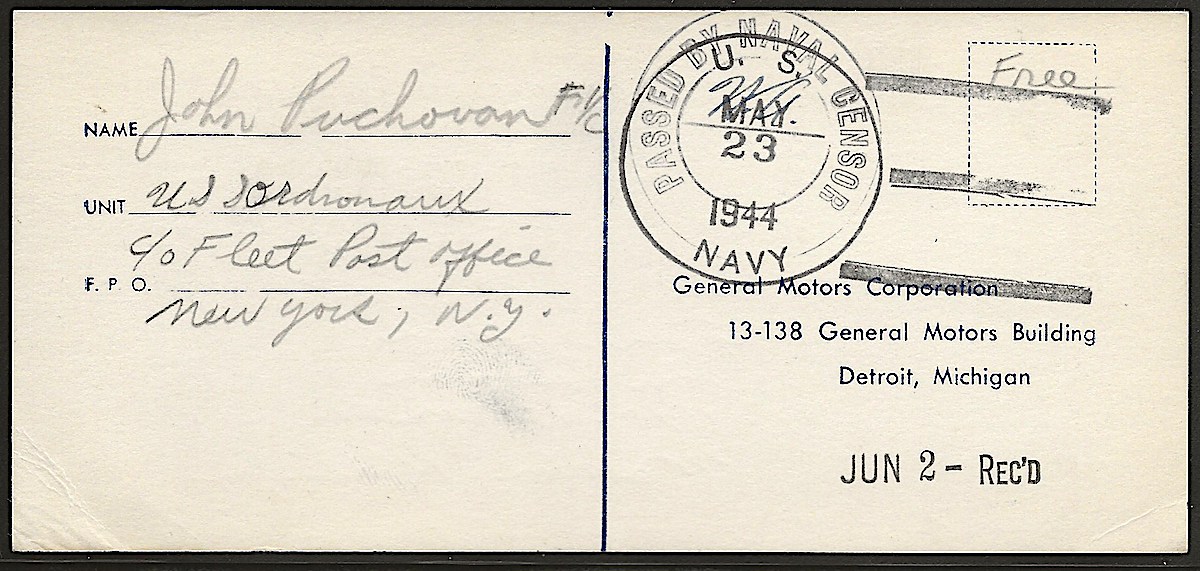 NAME John Puchovan F 1/c
UNIT USS Ordronaux
c/o Fleet Post Office
F. P. O.
New York, N.Y.
PASSED BY NAVAL CENSOR
U. S.
MAY.
23
1944
NAVY
Free
General Motors Corporation
13-138 General Motors Building
Detroit, Michigan
JUN 2 - REC'D